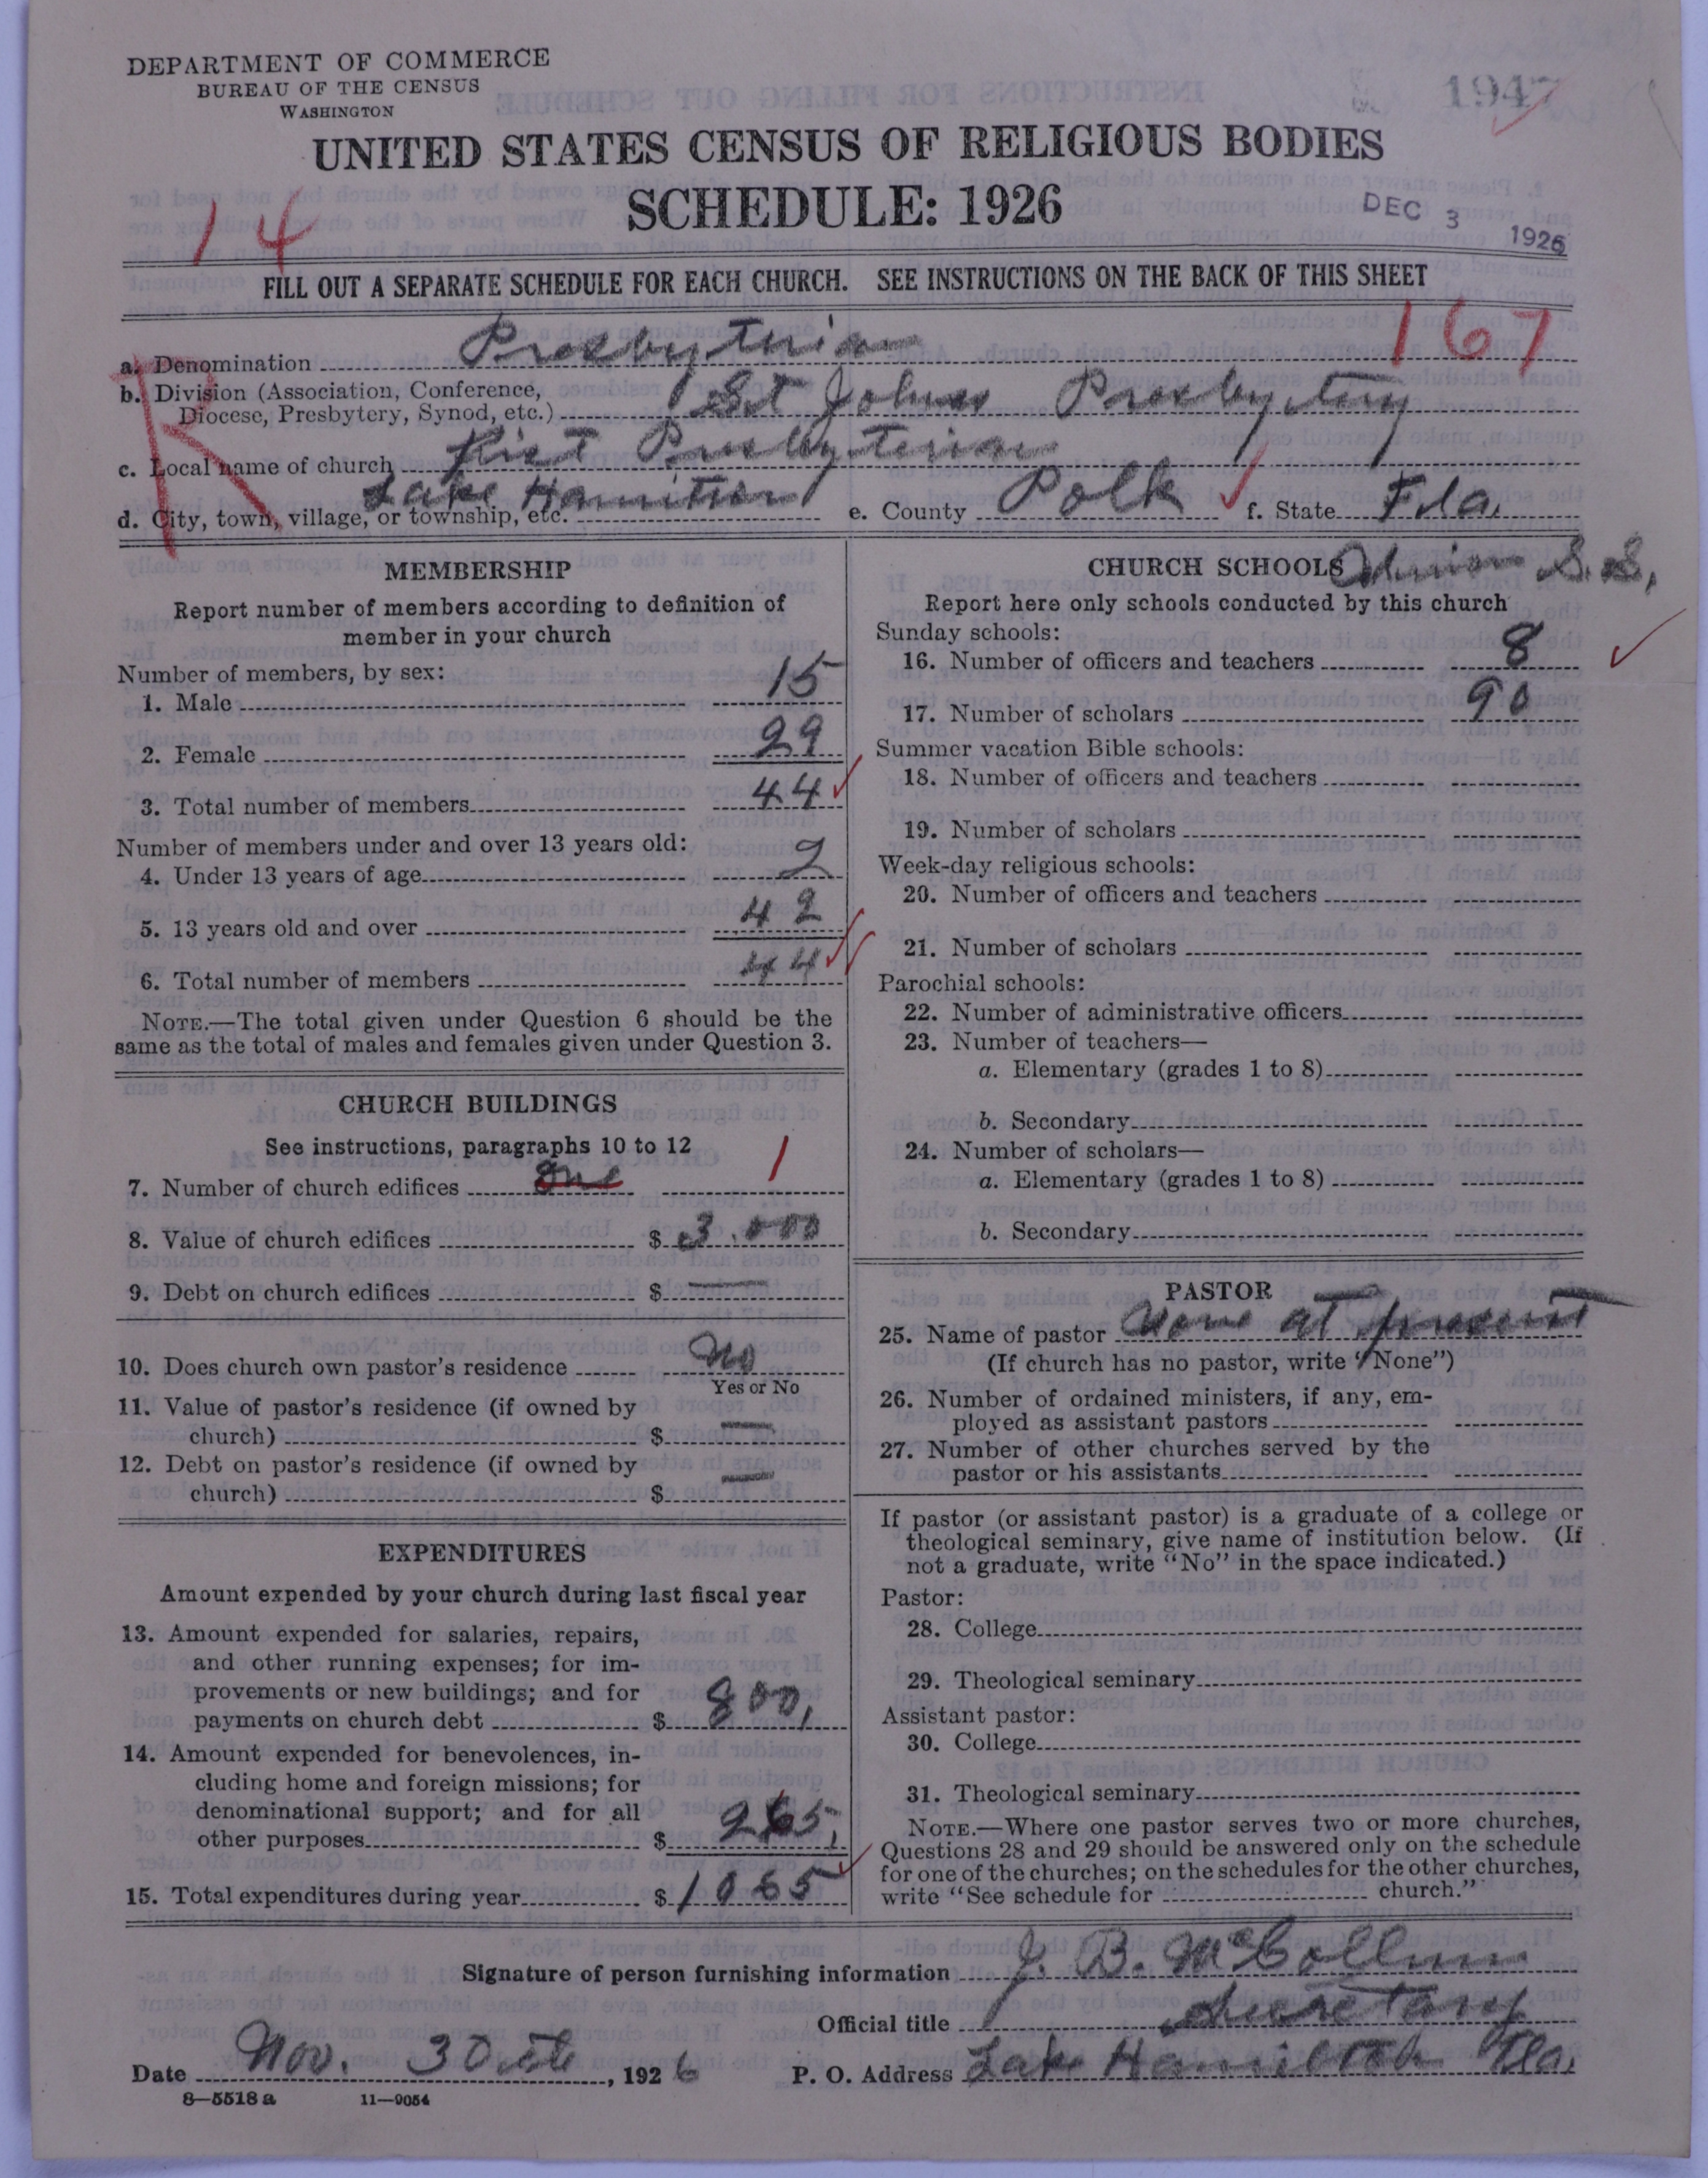 DEPARTMENT OF COMMERCE
BUREAU OF THE CENSUS
WASHINGTON
1947
UNITED STATES CENSUS OF RELIGIOUS BODIES
SCHEDULE: 1926
DEC 3 1926
14
FILL OUT A SEPARATE SCHEDULE FOR EACH CHURCH. SEE INSTRUCTIONS ON THE BACK OF THIS SHEET
167
a. Denomination Presbyterian
b. Division (Association, Conference,
Diocese, Presbytery, Synod, etc.) St Johns Presbytery
c. Local name of church First Presbyterian
d. City, town, village, or township, etc. Lake Hamilton e. County Polk f. State Fla.
MEMBERSHIP
Report number of members according to definition of
member in your church
Number of members, by sex:
1. Male 15
2. Female 29
3. Total number of members 44
Number of members under and over 13 years old:
4. Under 13 years of age 2
5. 13 years old and over 42
6. Total number of members 44
NOTE.—The total given under Question 6 should be the
same as the total of males and females given under Question 3.
CHURCH BUILDINGS
See instructions, paragraphs 10 to 12
7. Number of church edifices One 1
8. Value of church edifices $ 3,000
9. Debt on church edifices $ —
10. Does church own pastor's residence No
Yes or No
11. Value of pastor's residence (if owned by
church) $ —
12. Debt on pastor's residence (if owned by
church) $ —
EXPENDITURES
Amount expended by your church during last fiscal year
13. Amount expended for salaries, repairs,
and other running expenses; for im-
provements or new buildings; and for
payments on church debt $ 800,
14. Amount expended for benevolences, in-
cluding home and foreign missions; for
denominational support; and for all
other purposes $ 265,
15. Total expenditures during year $ 1065
CHURCH SCHOOLS S.S.
Report here only schools conducted by this church
Sunday schools:
16. Number of officers and teachers 8
17. Number of scholars 90
Summer vacation Bible schools:
18. Number of officers and teachers
19. Number of scholars
Week-day religious schools:
20. Number of officers and teachers
21. Number of scholars
Parochial schools:
22. Number of administrative officers
23. Number of teachers—
a. Elementary (grades 1 to 8)
b. Secondary
24. Number of scholars—
a. Elementary (grades 1 to 8)
b. Secondary
PASTOR
25. Name of pastor None at present
(If church has no pastor, write "None")
26. Number of ordained ministers, if any, em-
ployed as assistant pastors
27. Number of other churches served by the
pastor or his assistants
If pastor (or assistant pastor) is a graduate of a college or
theological seminary, give name of institution below. (If
not a graduate, write "No" in the space indicated.)
Pastor:
28. College
29. Theological seminary
Assistant pastor:
30. College
31. Theological seminary
NOTE.—Where one pastor serves two or more churches,
Questions 28 and 29 should be answered only on the schedule
for one of the churches; on the schedules for the other churches,
write "See schedule for church."
Signature of person furnishing information J. B. McCollum
Official title Secretary
Date Nov. 30th, 1926 P. O. Address Lake Hamilton Fla.
8—5518 a 11—9054